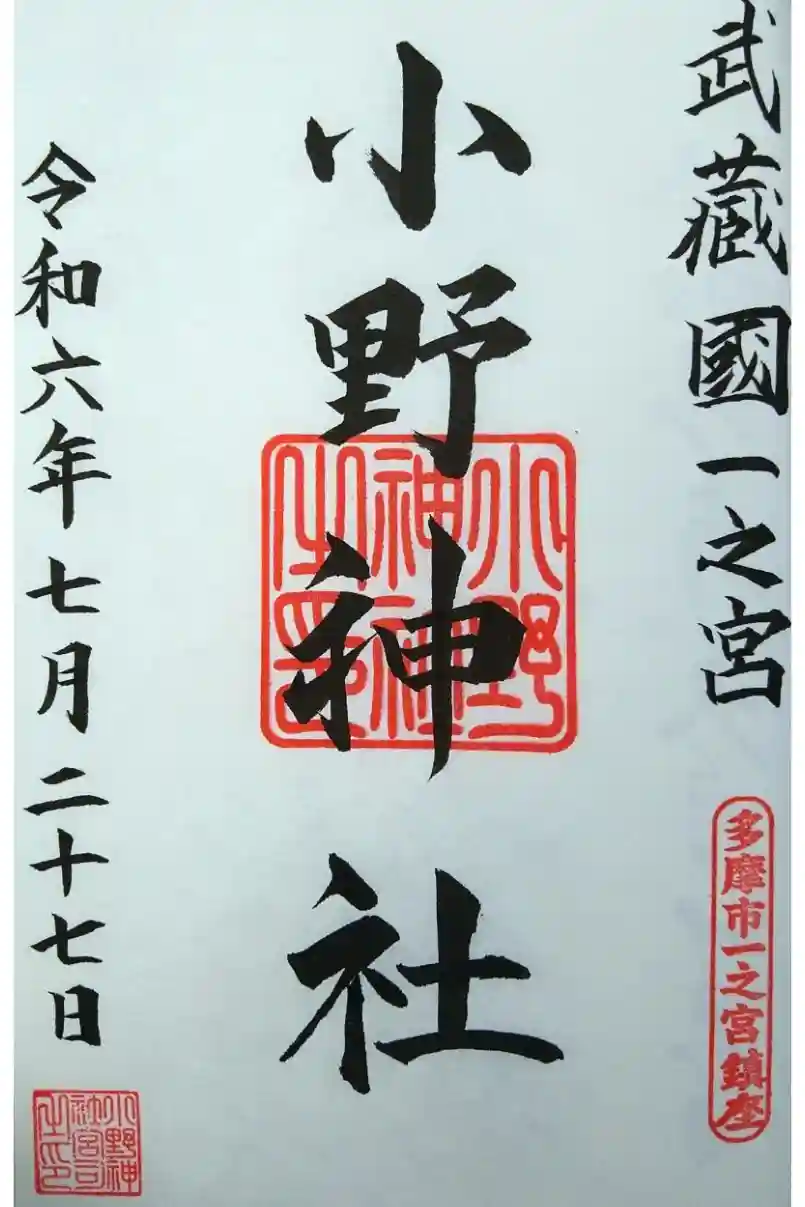 武藏國一之宮
多摩市一之宮鎮座
小野神社
小野神社之印
令和六年七月二十七日
小野神社宮司之印